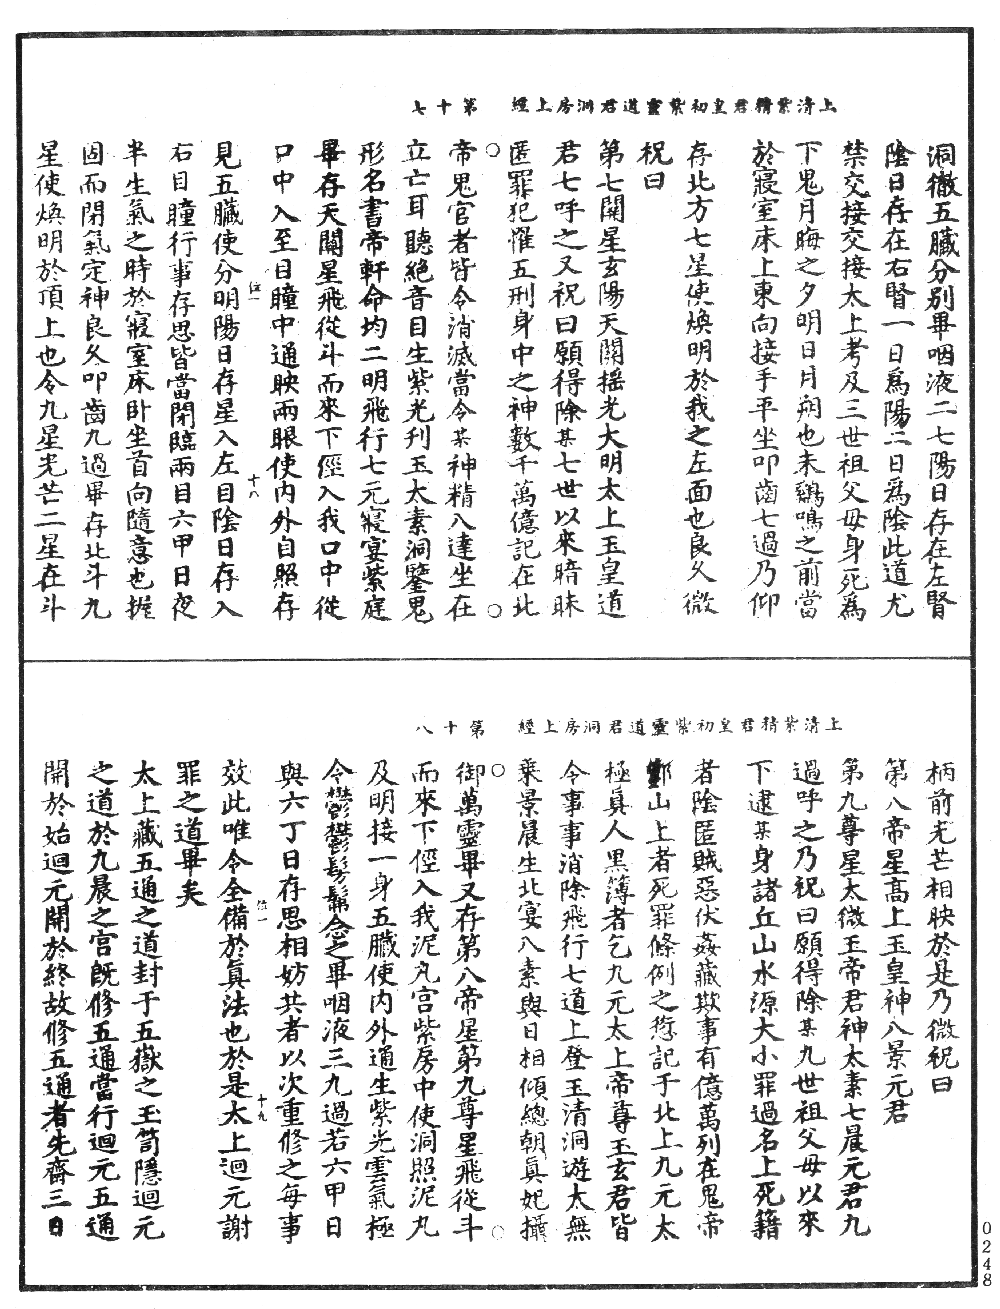 上清紫精君皇初紫靈道君洞房上經　第十七
洞徹五臟分別畢咽液二七陽日存在左腎
陰日存在右腎一日爲陽二日爲陰此道尤
禁交接交接太上考及三世祖父母身死爲
下鬼月晦之夕明日月朔也未鷄鳴之前當
於寢室床上東向接手平坐叩齒七過乃仰
存北方七星使煥明於我之左面也良久微
祝曰
第七關星玄陽天關搖光大明太上玉皇道
君七呼之又祝曰願得除某七世以來暗昧
匿罪犯惟五刑身中之神數千萬億記在北
帝鬼官者皆令消滅當令某神精八達坐在
立亡耳聽絕音目生紫光刋玉太素洞鑒鬼
形名書帝軒命均二明飛行七元寢宴紫庭
畢存天關星飛從斗而來下徑入我口中從
口中入至目瞳中通映兩眼使內外自照存
見五臟使分明陽日存星入左目陰日存入
右目瞳行事存思皆當閉臨兩目六甲日夜
半生氣之時於寢室床卧坐首向隨意也握
固而閉氣定神良久叩齒九過畢存北斗九
星使煥明於頂上也令九星光芒二星在斗
伍一
十八
上清紫精君皇初紫靈道君洞房上經　第十八
柄前光芒相映於是乃微祝曰
第八帝星高上玉皇神八景元君
第九尊星太微玉帝君神太素七晨元君九
過呼之乃祝曰願得除某九世祖父母以來
下逮某身諸丘山水源大小罪過名上死籍
者陰匿賊惡伏姦藏欺事有億萬列在鬼帝
酆山上者死罪條例之愆記于北上九元太
極眞人黑簿者乞九元太上帝尊玉玄君皆
令事事消除飛行七道上登玉清洞遊太無
乘景晨生北宴八素與日相傾總朝眞妃攝
御萬靈畢又存第八帝星第九尊星飛從斗
而來下徑入我泥丸宮紫房中使洞照泥丸
及明接一身五臟使內外通生紫光雲氣極
令鬱鬱髣髴念之畢咽液三九過若六甲日
與六丁日存思相妨共者以次重修之每事
效此唯令全備於眞法也於是太上迴元謝
罪之道畢矣
太上藏五通之道封于五嶽之玉笥隱迴元
之道於九晨之宮旣修五通當行迴元五通
開於始迴元開於終故修五通者先齋三日
伍一
十九
0248